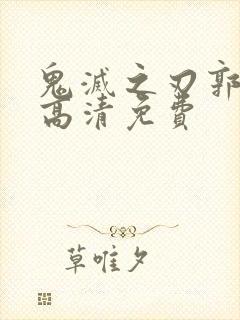 鬼滅之刃郭
高清免費
草唯夕